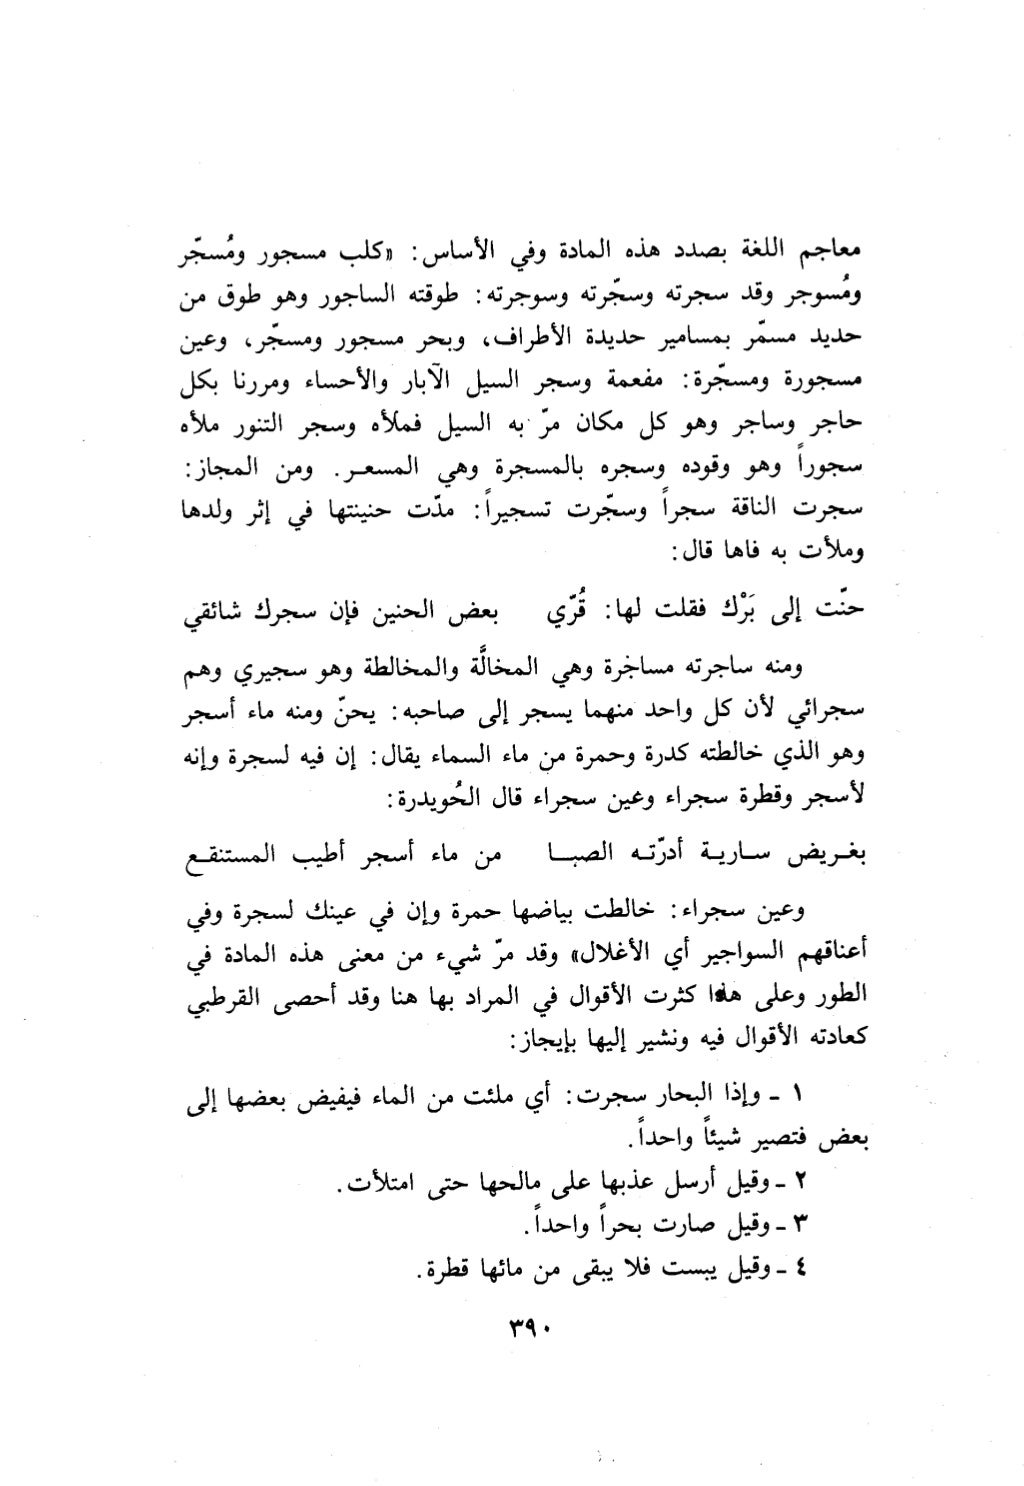 معاجم اللغة بصدد هذه المادة وفي الأساس: «كلب مسجور ومُسجّر
ومُسوجر وقد سجرته وسجّرته وسوجرته: طوقته الساجور وهو طوق من
حديد مسمّر بمسامير حديدة الأطراف، وبحر مسجور ومسجّر، وعين
مسجورة ومسجّرة: مفعمة وسجر السيل الآبار والأحساء ومررنا بكل
حاجر وساجر وهو كل مكان مرّ به السيل فملأه وسجر التنور ملأه
سجوراً وهو وقوده وسجره بالمسجرة وهي المسعـر. ومن المجاز:
سجرت الناقة سجراً وسجّرت تسجيراً: مدّت حنينتها في إثر ولدها
وملأت به فاها قال:
حنّت إلى بَرْك فقلت لها: قُرّي بعض الحنين فإن سجرك شائقي
ومنه ساجرته مساجرة وهي المخالَّة والمخالطة وهو سجيري وهم
سجرائي لأن كل واحد منهما يسجر إلى صاحبه: يحنّ ومنه ماء أسجر
وهو الذي خالطته كدرة وحمرة من ماء السماء يقال: إن فيه لسجرة وإنه
لأسجر وقطرة سجراء وعين سجراء قال الحُويدرة:
بغـريض سـاريـة أدرّتـه الصبـا من ماء أسجر أطيب المستنقـع
وعين سجراء: خالطت بياضها حمرة وإن في عينك لسجرة وفي
أعناقهم السواجير أي الأغلال» وقد مرّ شيء من معنى هذه المادة في
الطور وعلى هذا كثرت الأقوال في المراد بها هنا وقد أحصى القرطبي
كعادته الأقوال فيه ونشير إليها بإيجاز:
١ ـ وإذا البحار سجرت: أي ملئت من الماء فيفيض بعضها إلى
بعض فتصير شيئاً واحداً.
٢ ـ وقيل أرسل عذبها على مالحها حتى امتلأت.
٣ ـ وقيل صارت بحراً واحداً.
٤ ـ وقيل يبست فلا يبقى من مائها قطرة.
٣٩٠